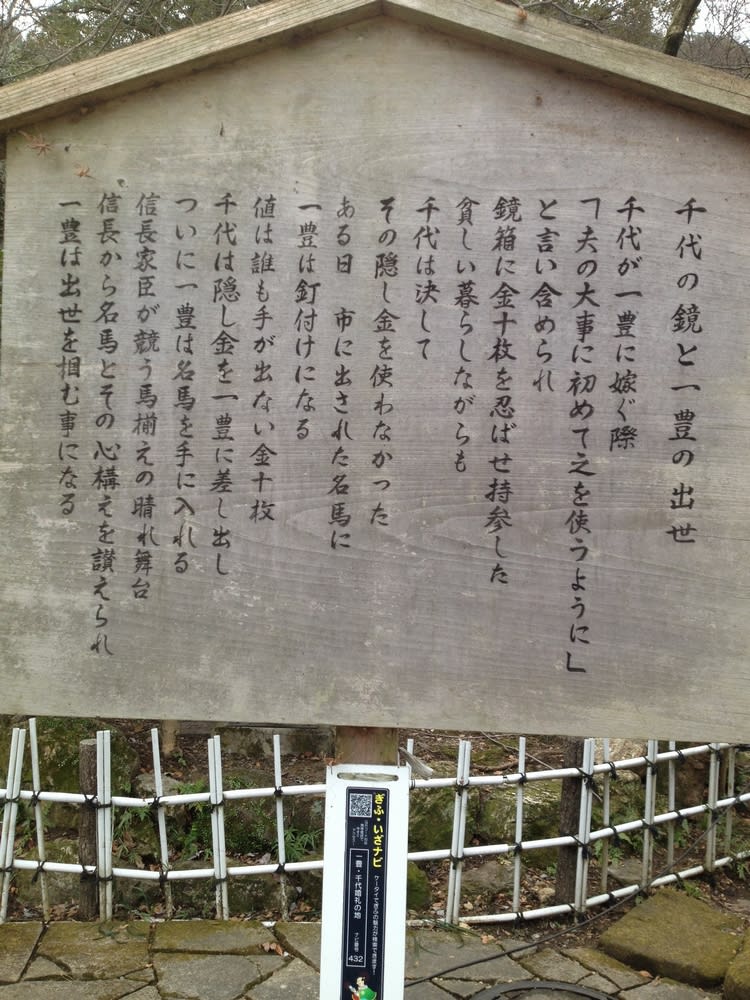 千代の鏡と一豊の出世
千代が一豊に嫁ぐ際
「夫の大事に初めて之を使うように」
と言い含められ
鏡箱に金十枚を忍ばせ持参した
貧しい暮らしながらも
千代は決して
その隠し金を使わなかった
ある日　市に出された名馬に
一豊は釘付けになる
値は誰も手が出ない金十枚
千代は隠し金を一豊に差し出し
ついに一豊は名馬を手に入れる
信長家臣が競う馬揃えの晴れ舞台
信長から名馬とその心構えを讃えられ
一豊は出世を掴む事になる
ぎふ・いざナビ
ケータイでぎふの魅力が検索できます！
一豊・千代婚礼の地
ナビ番号
432